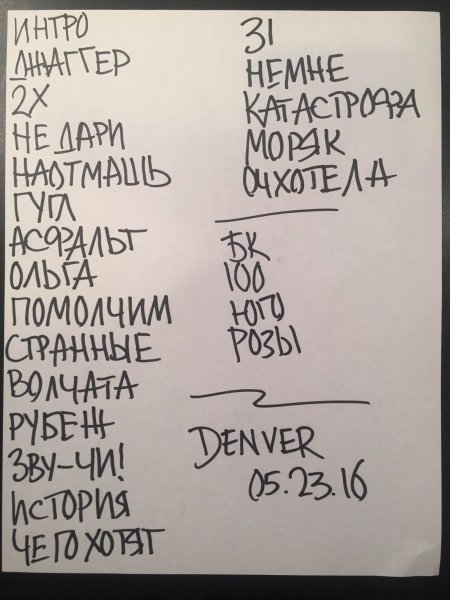 ИНТРО
ДЖАГГЕР
2Х
НЕ ДАРИ
НАОТМАШЬ
ГУГЛ
АСФАЛЬТ
ОЛЬГА
ПОМОЛЧИМ
СТРАННЫЕ
ВОЛЧАТА
РУБЕЖ
ЗВУ-ЧИ!
ИСТОРИЯ
ЧЕГО ХОТЯТ
31
НЕМНЕ
КАТАСТРОФА
МОРЯК
ОЧХОТЕЛА
БК
100
ЮГО
РОЗЫ
DENVER
05.23.16